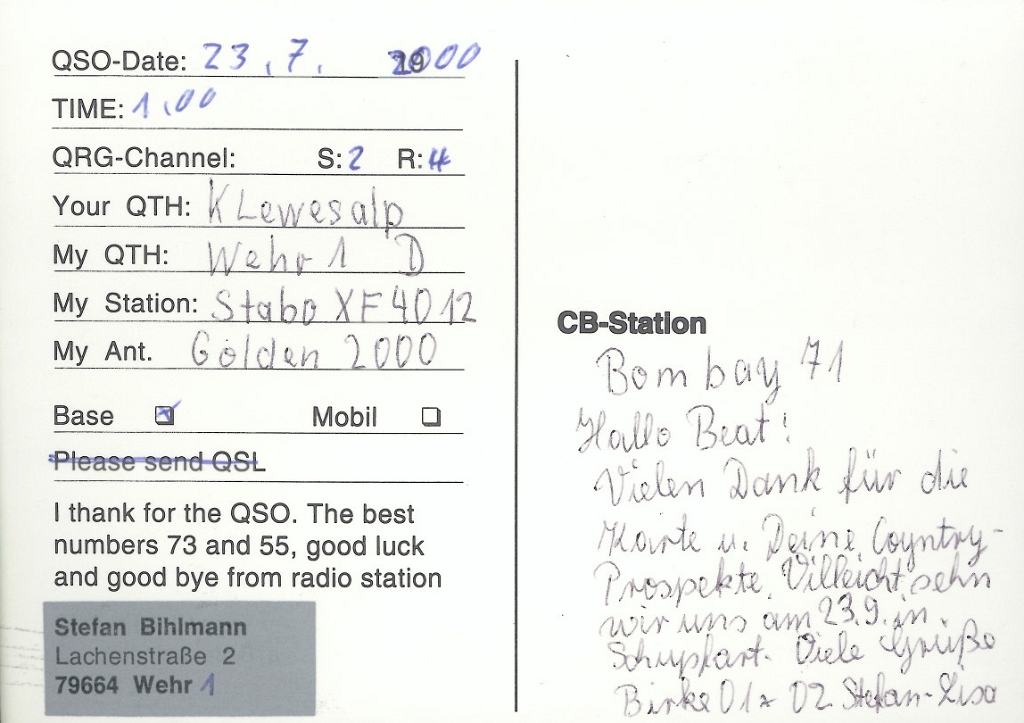 QSO-Date: 23.7. 2000
TIME: 1.00
QRG-Channel: S: 2 R: 4
Your QTH: KLewesalp
My QTH: Wehr 1 D
My Station: Stabo XF 4012
My Ant. Golden 2000
Base Mobil
Please send QSL
I thank for the QSO. The best
numbers 73 and 55, good luck
and good bye from radio station
Stefan Bihlmann
Lachenstraße 2
79664 Wehr 1
CB-Station
Bombay 71
Hallo Beat!
Vielen Dank für die
Karte u. Deine Coyntry-
Prospekte. Villeicht sehn
wir uns am 23.9. in
Schupfart. Viele Grüße
Birke 01 02 Stefan-Lisa